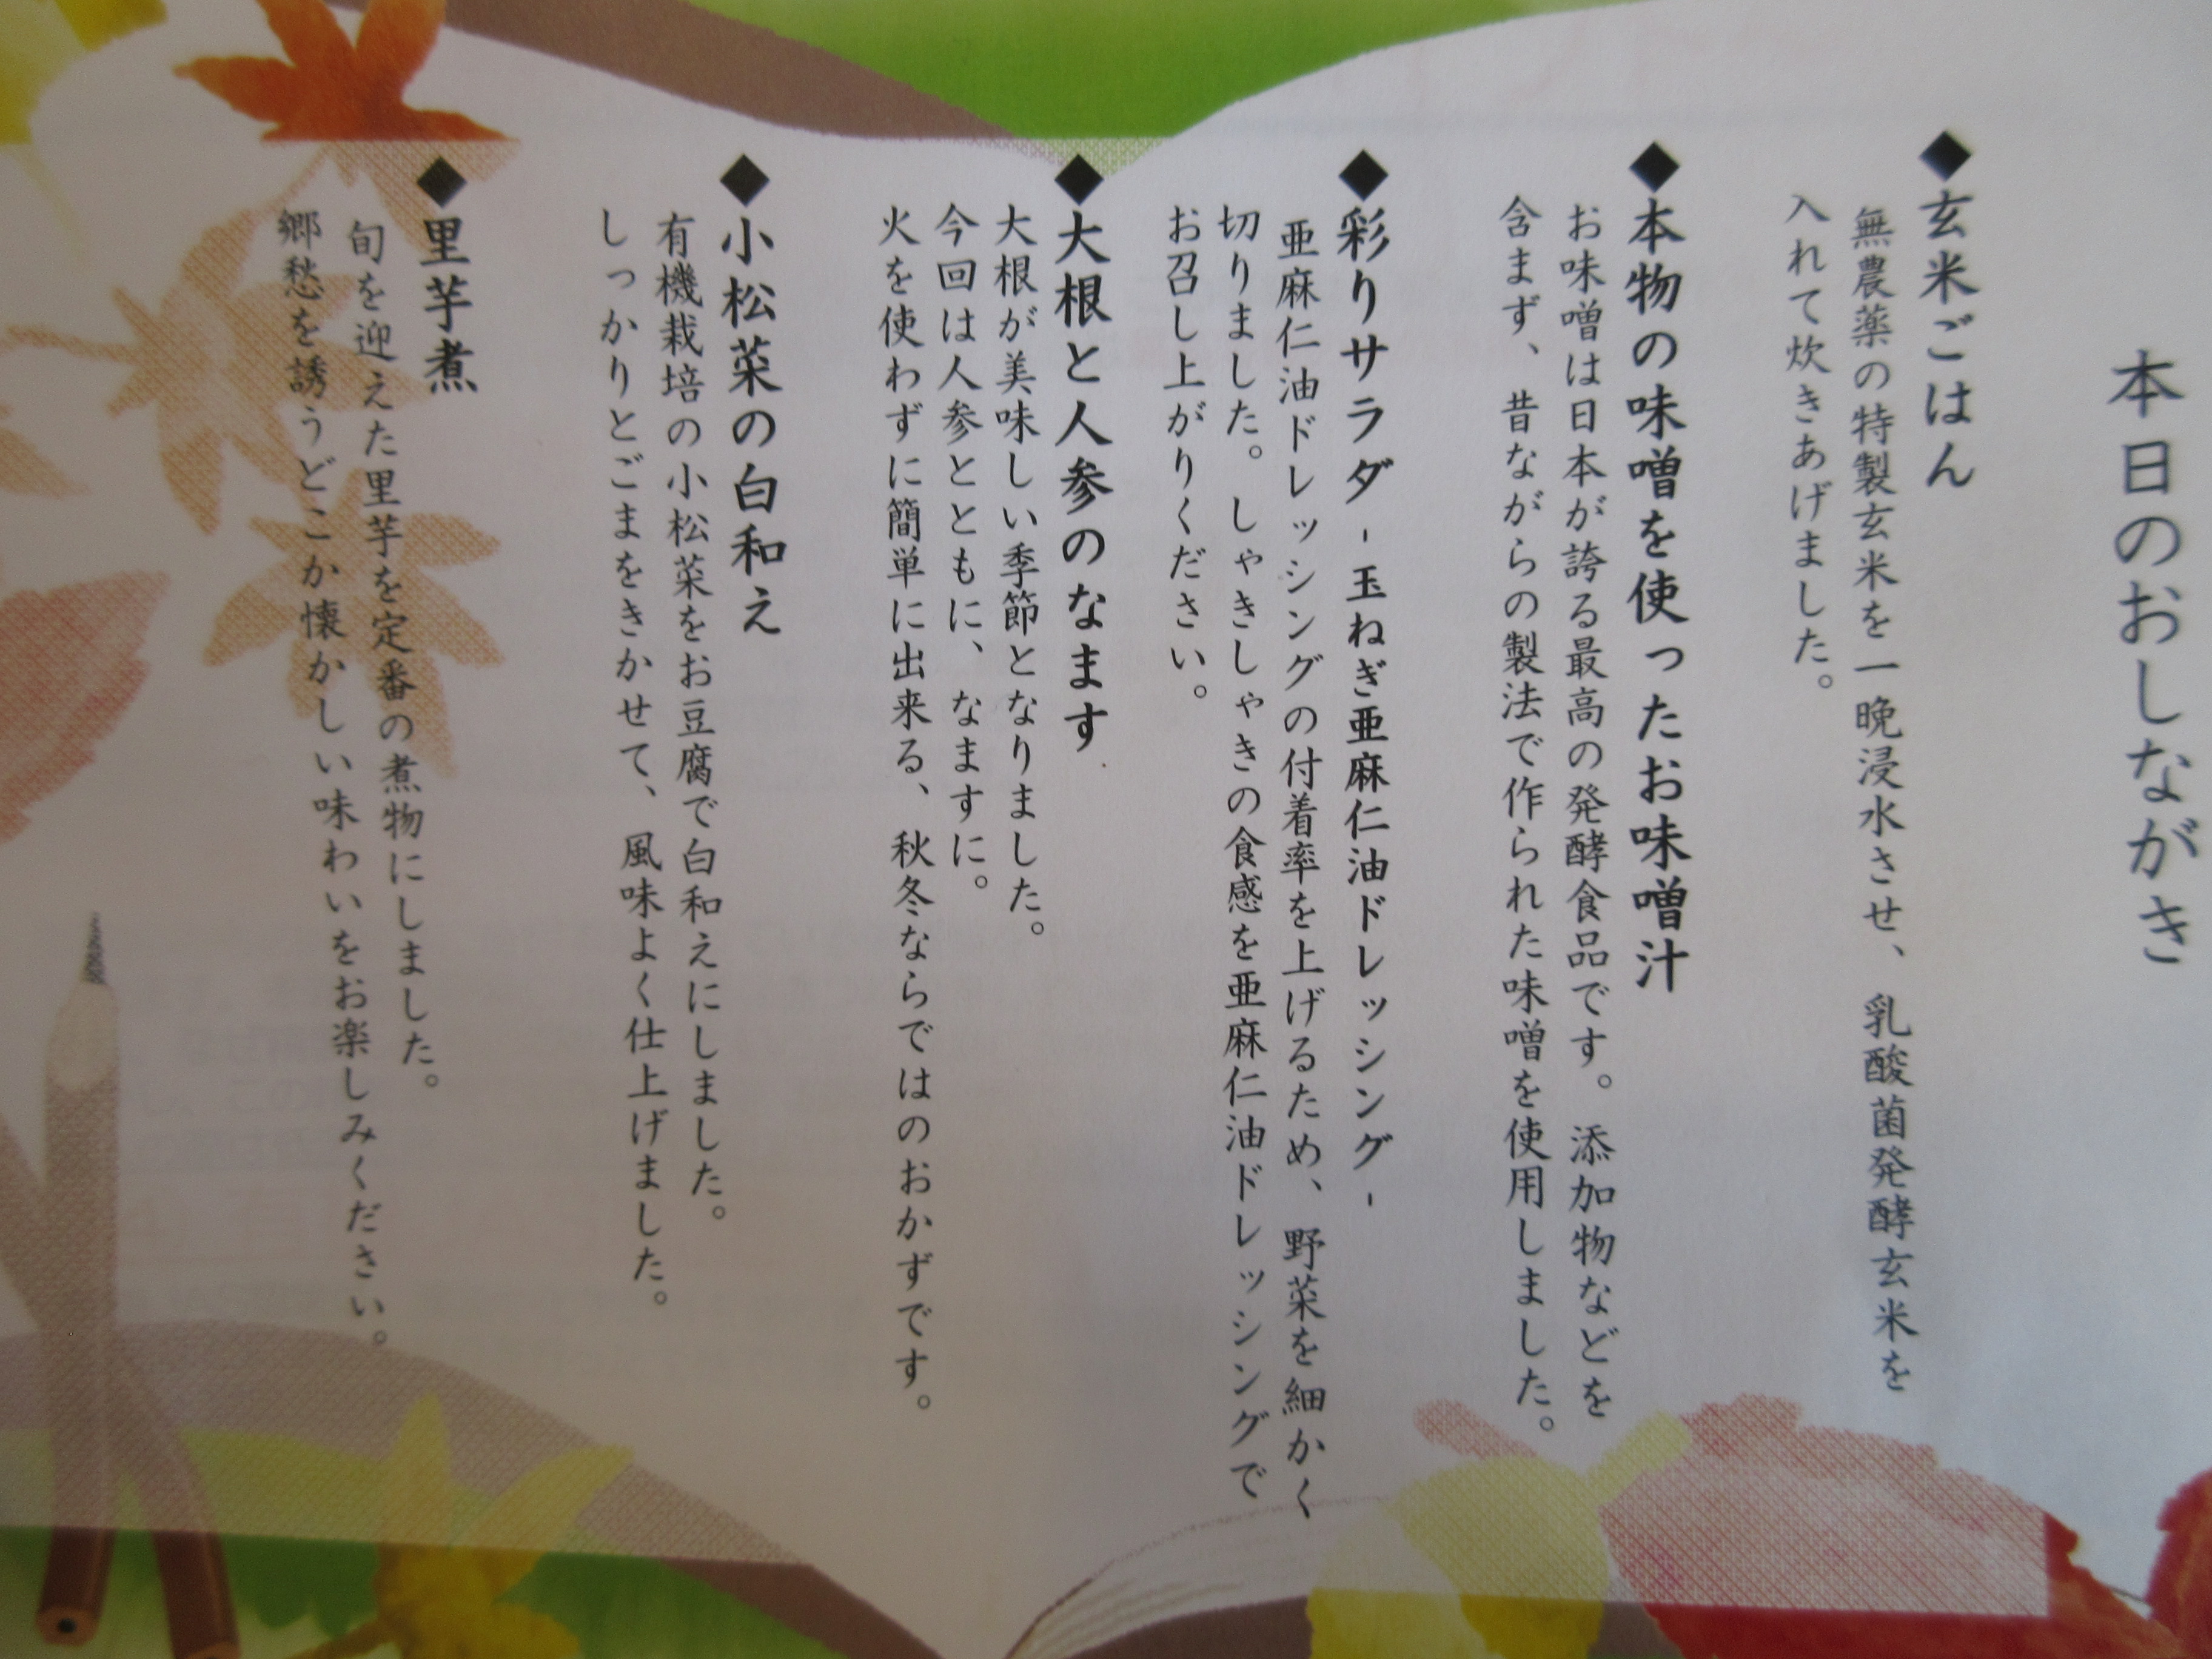 本日のおしながき
◆玄米ごはん
無農薬の特製玄米を一晩浸水させ、乳酸菌発酵玄米を
入れて炊きあげました。
◆本物の味噌を使ったお味噌汁
お味噌は日本が誇る最高の発酵食品です。添加物などを
含まず、昔ながらの製法で作られた味噌を使用しました。
◆彩りサラダ-玉ねぎ亜麻仁油ドレッシング-
亜麻仁油ドレッシングの付着率を上げるため、野菜を細かく
切りました。しゃきしゃきの食感を亜麻仁油ドレッシングで
お召し上がりください。
◆大根と人参のなます
大根が美味しい季節となりました。
今回は人参とともに、なますに。
火を使わずに簡単に出来る、秋冬ならではのおかずです。
◆小松菜の白和え
有機栽培の小松菜をお豆腐で白和えにしました。
しっかりとごまをきかせて、風味よく仕上げました。
◆里芋煮
旬を迎えた里芋を定番の煮物にしました。
郷愁を誘うどこか懐かしい味わいをお楽しみください。